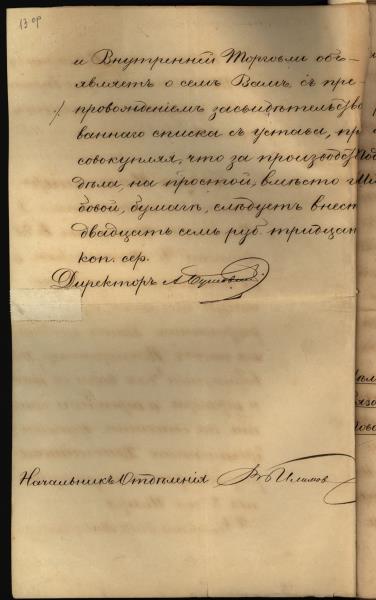 13 ор
и Внутренней Торговли объ-
являетъ о семъ Вамъ, съ пре-
провожденіемъ засвидѣтельство
ваннаго списка съ устава, пр
совокупляя, что за производст
дѣла, на простой, вмѣсто
бовой, бумагѣ, слѣдуетъ внест
двадцать семь руб. тридцат
коп. сер.
Директоръ А.
Начальникъ Отдѣленія